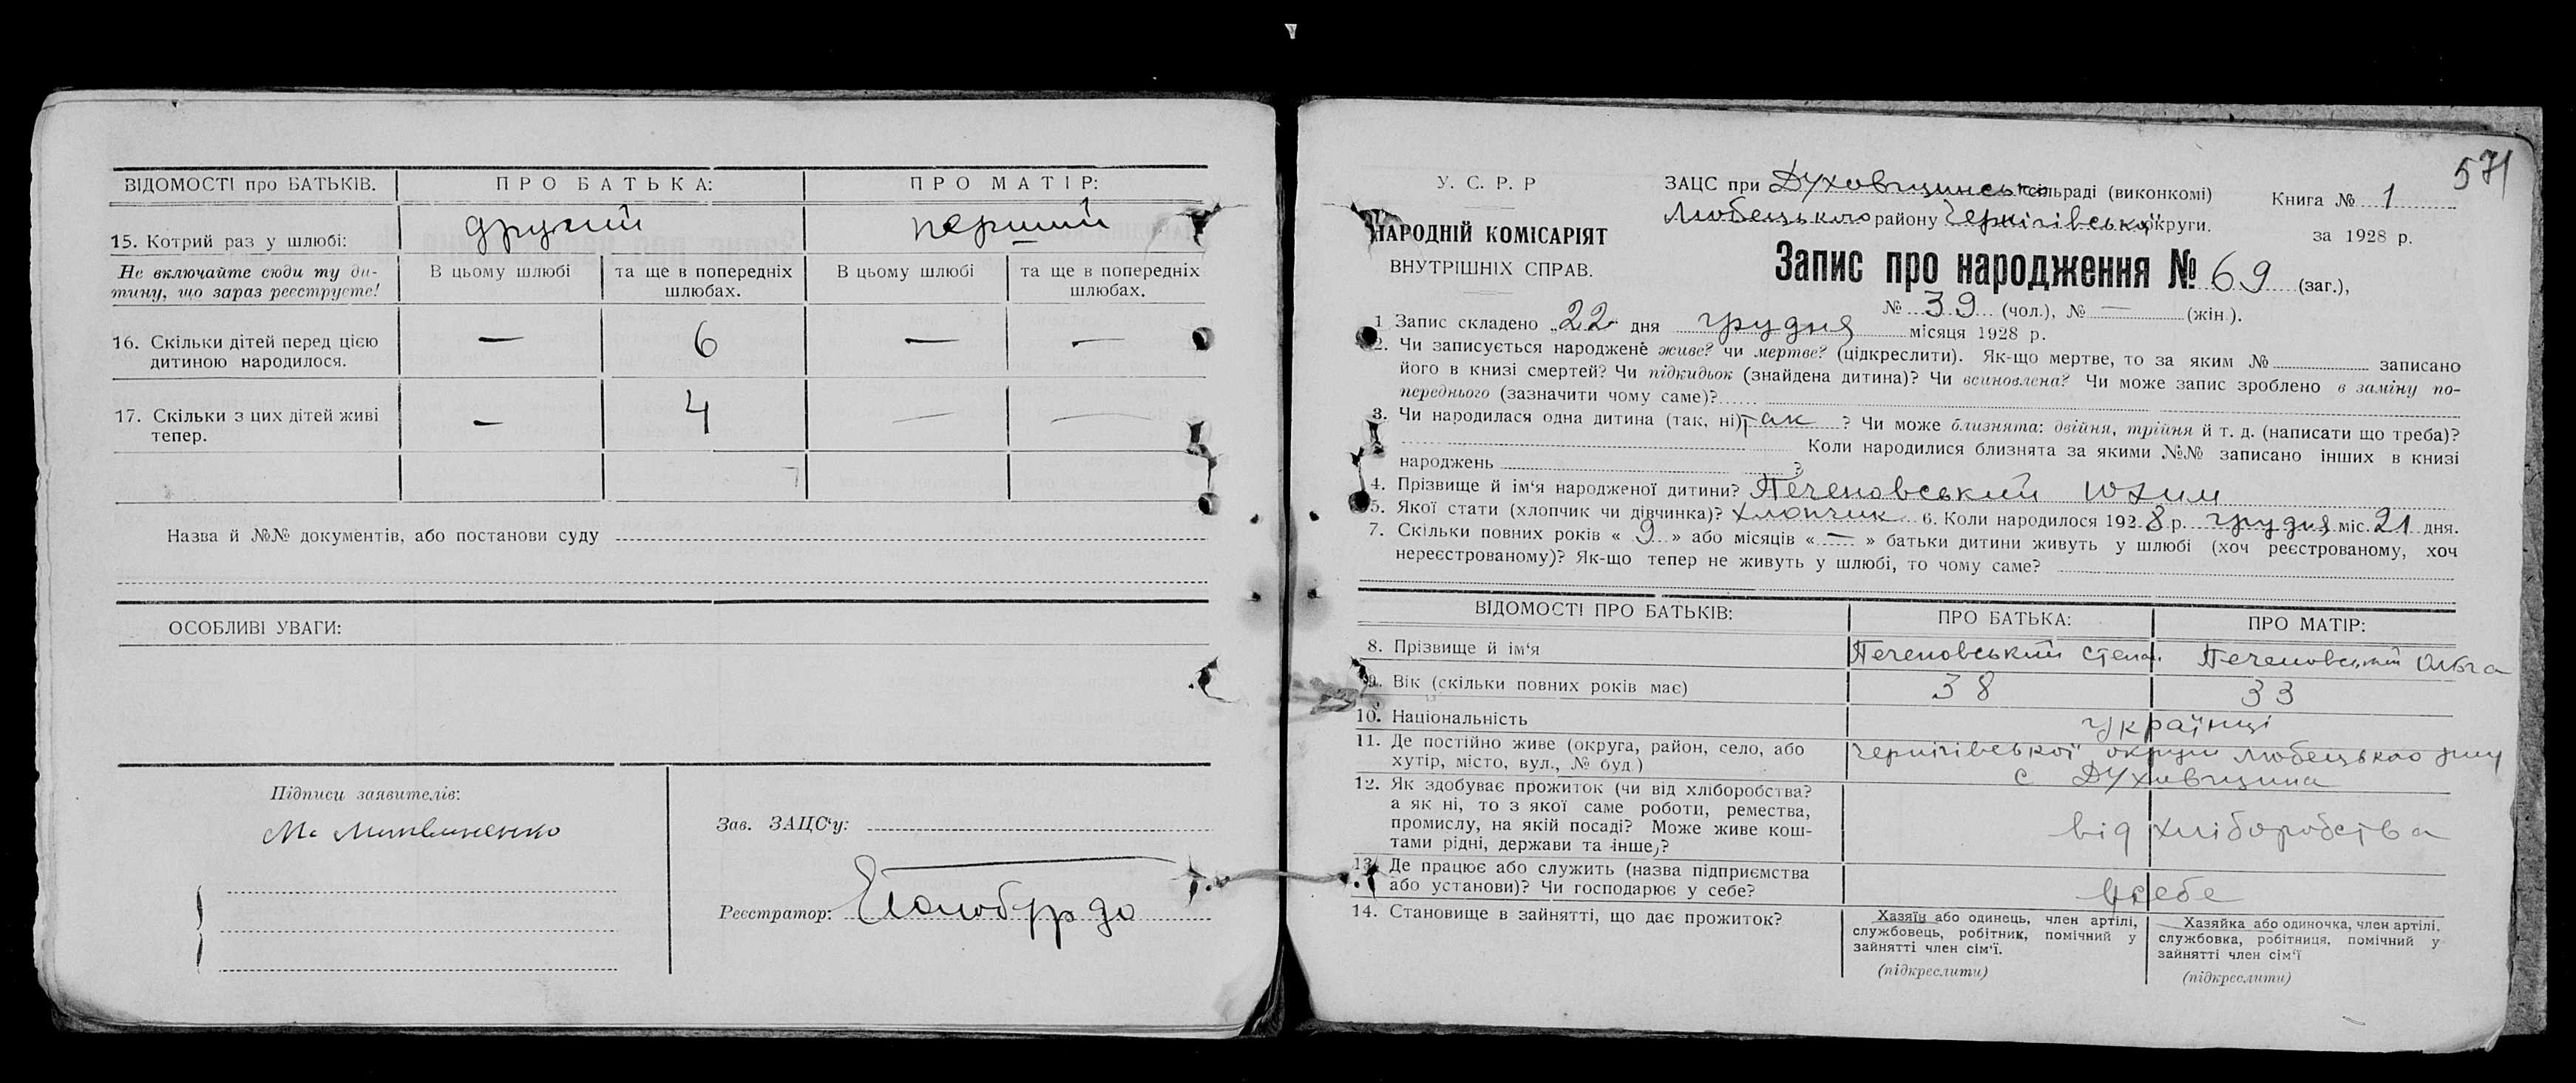 ВІДОМОСТІ про БАТЬКІВ. ПРО БАТЬКА: ПРО МАТІР:
15. Котрий раз у шлюбі: другий перший
Не включайте сюди ту ди-
тину, що зараз реєструєте!
В цьому шлюбі та ще в попередніх шлюбах. В цьому шлюбі та ще в попередніх шлюбах.
16. Скільки дітей перед цією
дитиною народилося. — 6 — —
17. Скільки з цих дітей живі
тепер. — 4 — —
Назва й №№ документів, або постанови суду
ОСОБЛИВІ УВАГИ:
Підписи заявителів:
Зав. ЗАЦС'у:
Реєстратор:
571
У. С. Р. Р
НАРОДНІЙ КОМІСАРІЯТ
ВНУТРІШНІХ СПРАВ.
ЗАЦС при Духовщинськ сільраді (виконкомі)
Любецького району Чернігівської округи.
Книга № 1
за 1928 р.
Запис про народження № 69 (заг.),
№ 39 (чол.), № — (жін.).
1 Запис складено „22" дня грудня місяця 1928 р.
2. Чи записується народжене живе? чи мертве? (підкреслити). Як-що мертве, то за яким № записано
його в книзі смертей? Чи підкидьок (знайдена дитина)? Чи всиновлена? Чи може запис зроблено в заміну по-
переднього (зазначити чому саме)?
3. Чи народилася одна дитина (так, ні) так ? Чи може близнята: двійня, трійня й т. д. (написати що треба)?
Коли народилися близнята за якими №№ записано інших в книзі
народжень ?
4. Прізвище й ім'я народженої дитини? Печеновський Юхим
5. Якої стати (хлопчик чи дівчинка)? хлопчик 6. Коли народилося 1928 р. грудня міс. 21 дня.
7. Скільки повних років « 9 » або місяців « — » батьки дитини живуть у шлюбі (хоч реєстрованому, хоч
нереєстрованому)? Як-що тепер не живуть у шлюбі, то чому саме?
ВІДОМОСТІ ПРО БАТЬКІВ: ПРО БАТЬКА: ПРО МАТІР:
8. Прізвище й ім'я Печеновський Степан Ольга
9. Вік (скільки повних років має) 38 33
10. Національність українці
11. Де постійно живе (округа, район, село, або
хутір, місто, вул., № буд.) Чернігівської округи Любецького
с Духовщина
12. Як здобуває прожиток (чи від хліборобства?
а як ні, то з якої саме роботи, ремества,
промислу, на якій посаді? Може живе кош-
тами рідні, держави та інше,? від хліборобства
13. Де працює або служить (назва підприємства
або установи)? Чи господарює у себе? у себе
14. Становище в зайнятті, що дає прожиток?
Хазяїн або одинець, член артілі,
службовець, робітник, помічний у
зайнятті член сім'ї.
(підкреслити)
Хазяйка або одиночка, член артілі,
службовка, робітниця, помічний у
зайнятті член сім'ї
(підкреслити)